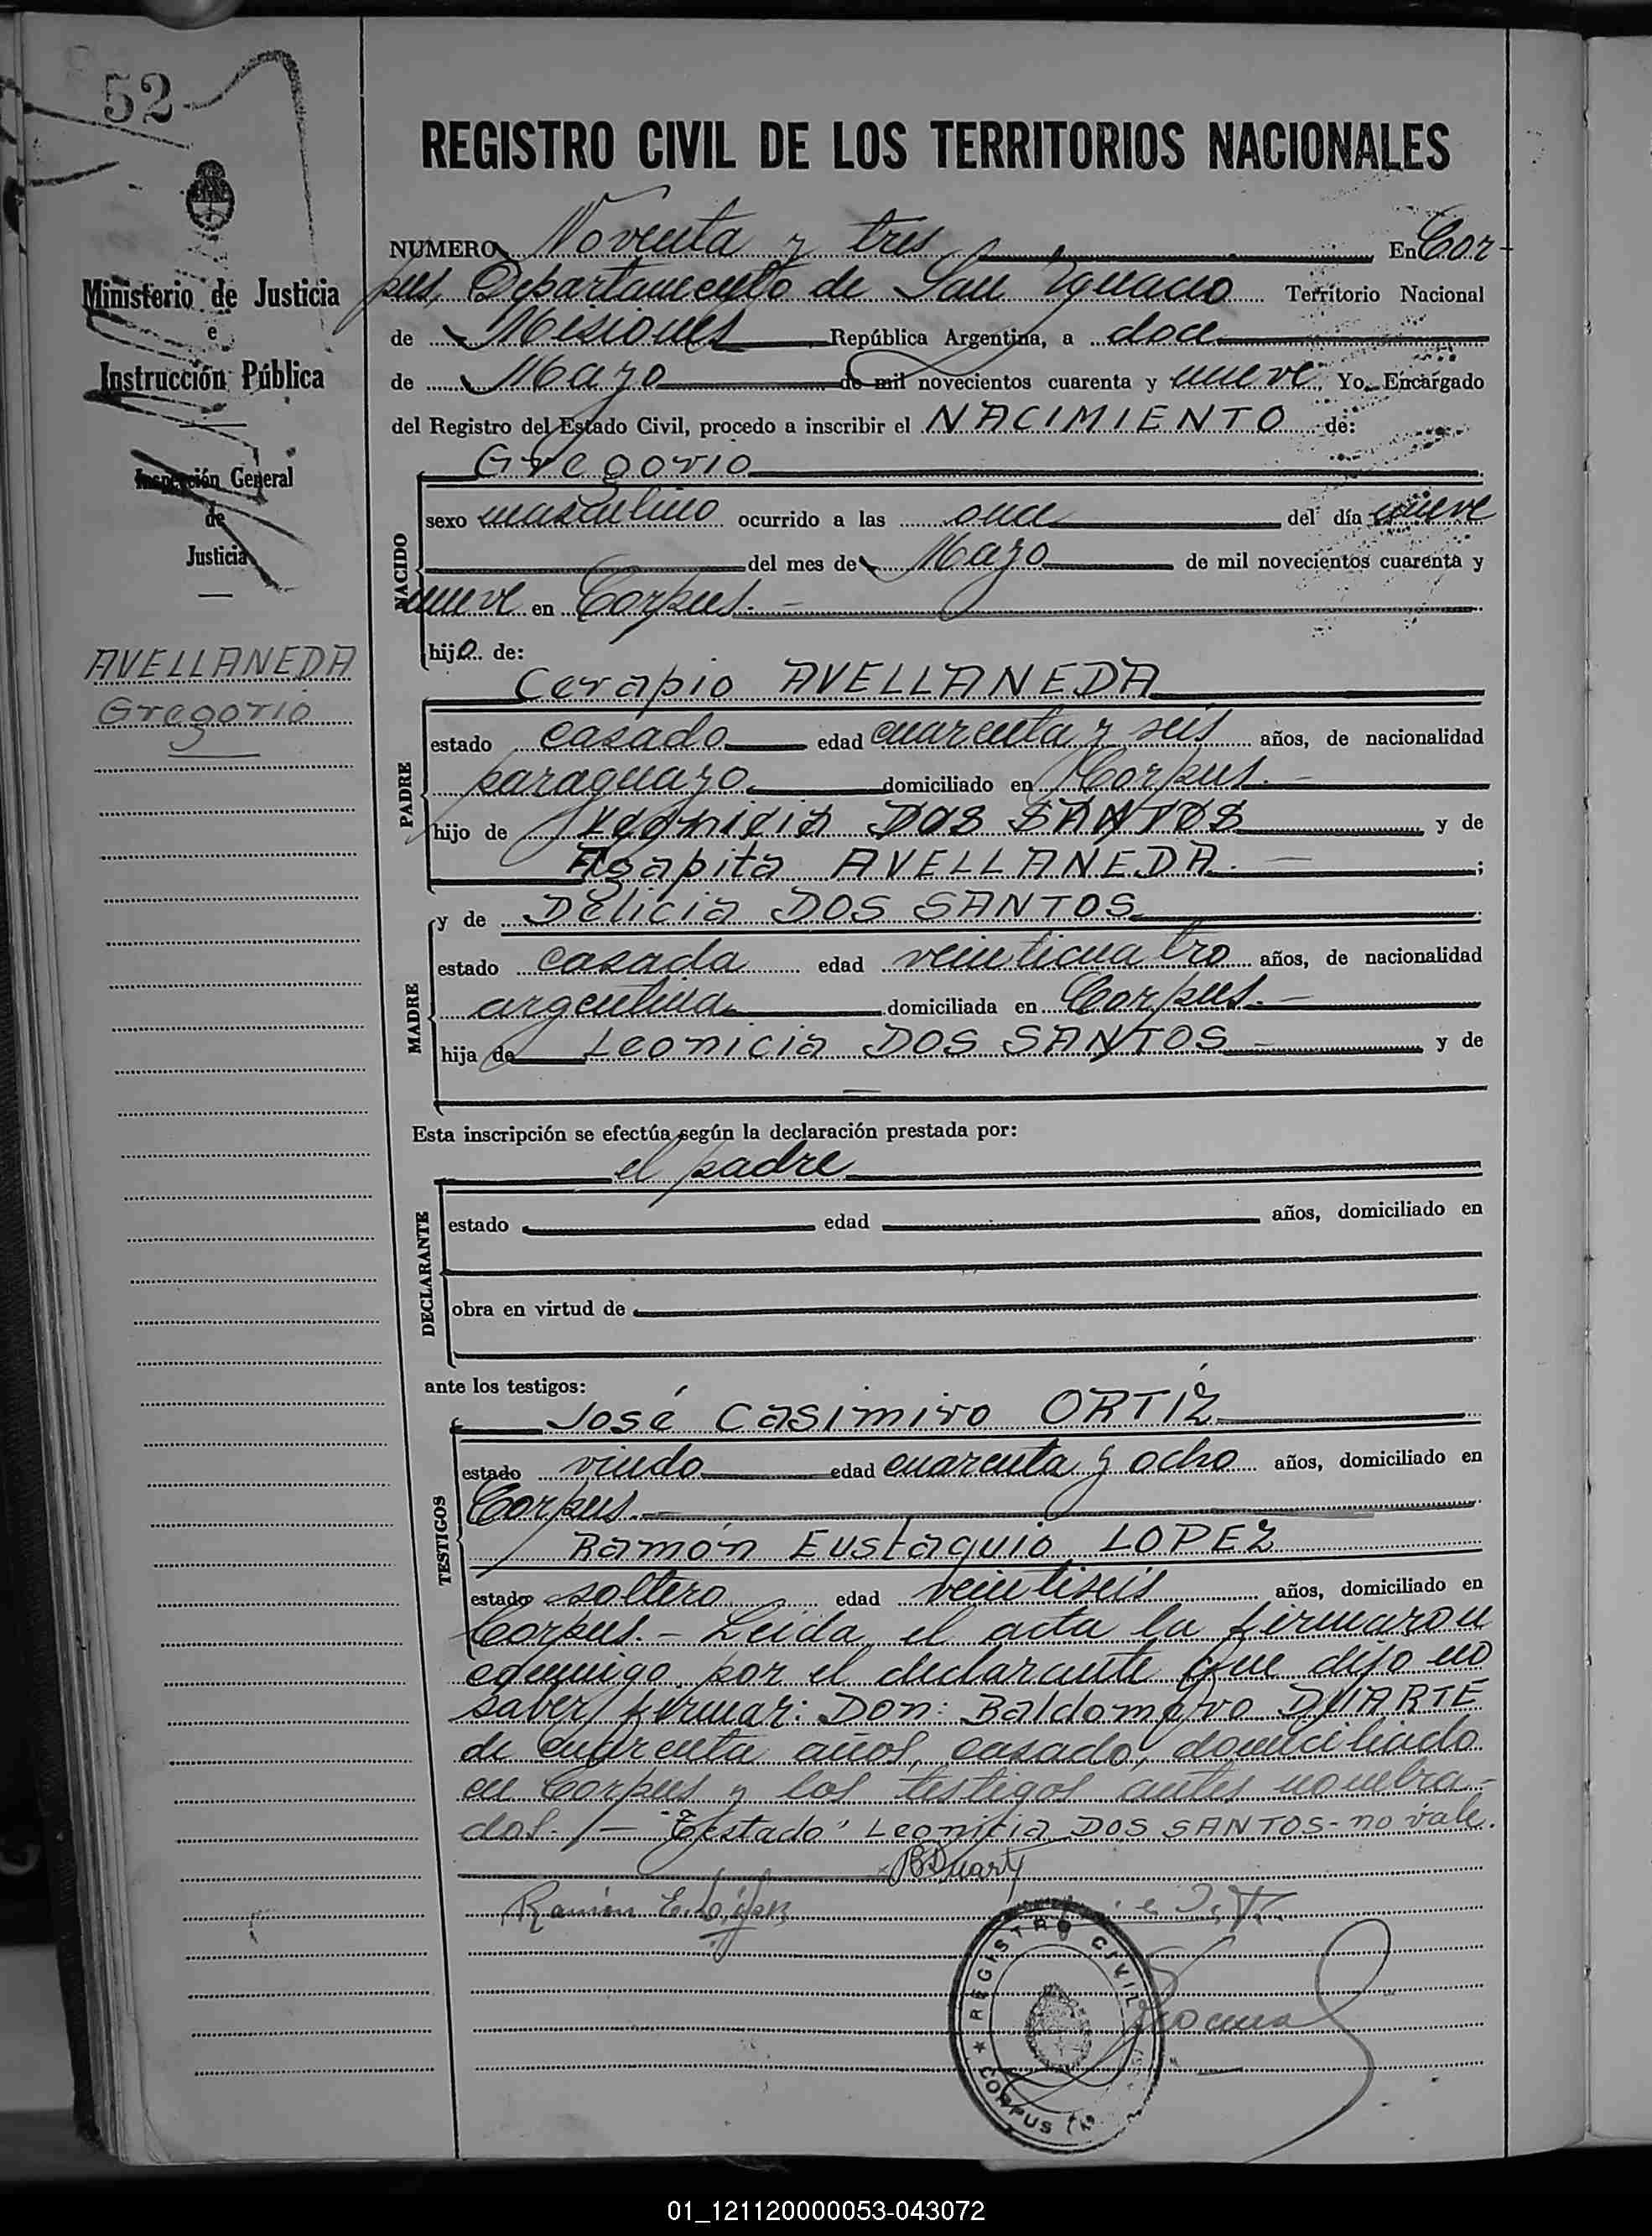 52
REGISTRO CIVIL DE LOS TERRITORIOS NACIONALES
Ministerio de Justicia
e
Instrucción Pública
Inspección General
de
Justicia
AVELLANEDA
Gregorio
NUMERO Noventa y tres En Cor-
pus, Departamento de San Ignacio Territorio Nacional
de Misiones República Argentina, a doce
de Mayo de mil novecientos cuarenta y nueve, Yo, Encargado
del Registro del Estado Civil, procedo a inscribir el NACIMIENTO de:
Gregorio
NACIDO
sexo masculino ocurrido a las once del día nueve
del mes de Mayo de mil novecientos cuarenta y
nueve en Corpus.-
hijo de:
Cerapio AVELLANEDA
PADRE
estado casado edad cuarenta y seis años, de nacionalidad
paraguayo domiciliado en Corpus.-
hijo de Leonicia DOS SANTOS y de
Agapita AVELLANEDA.- ;
y de Delicia DOS SANTOS
MADRE
estado casada edad veinticuatro años, de nacionalidad
argentina domiciliada en Corpus.-
hija de Leonicia DOS SANTOS - y de
Esta inscripción se efectúa según la declaración prestada por:
el padre
DECLARANTE
estado edad años, domiciliado en
obra en virtud de
ante los testigos:
José Casimiro ORTIZ
TESTIGOS
estado viudo edad cuarenta y ocho años, domiciliado en
Corpus.-
Ramón Eustaquio LOPEZ
estado soltero edad veintiseis años, domiciliado en
Corpus.- Leida el acta la firmaron
conmigo por el declarante que dijo no
saber firmar: Don: Baldomero DUARTE
de cuarenta años, casado, domiciliado
en Corpus y los testigos antes nombra-
dos.- Testado "Leonicia DOS SANTOS- no vale.
BDuarte
Ramón E. López
REGISTRO CIVIL
CORPUS
01_121120000053-043072